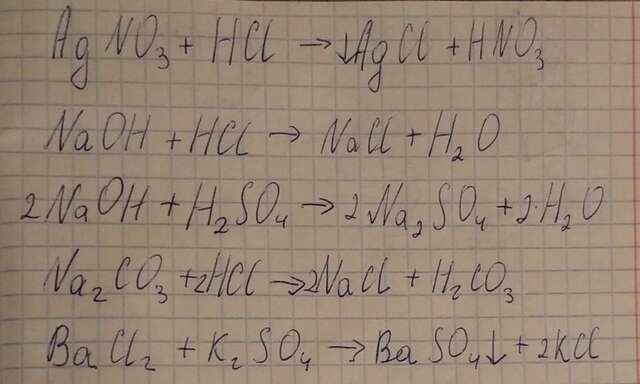 AgNO₃ + HCl → ↓AgCl + HNO₃
NaOH + HCl → NaCl + H₂O
2NaOH + H₂SO₄ → 2Na₂SO₄ + 2·H₂O
Na₂CO₃ + 2HCl → 2NaCl + H₂CO₃
BaCl₂ + K₂SO₄ → BaSO₄↓ + 2KCl